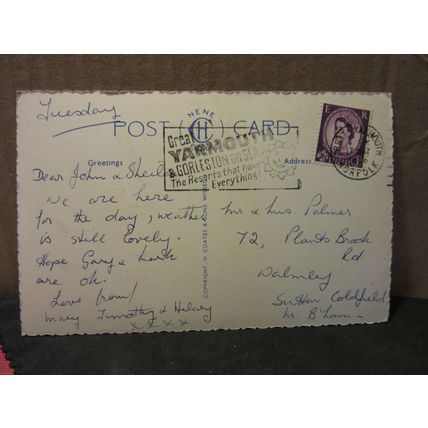 Tuesday
NENE
POST CH CARD
Great
YARMOUTH
& GORLESTON ON SEA
The Resorts that have
Everything!
YARMOUTH
NORFOLK
Greetings
Address
Dear John & Sheila
we are here
for the day, weather
is still lovely.
Hope Gary & Mark
are ok.
Love from
Mary Timothy &
x x x x
COPYRIGHT H COATES & SONS WISBECH
Mr & Mrs Palmer
72, Plants Brook
Rd
Walmley
Sutton Coldfield
Nr. B'ham.